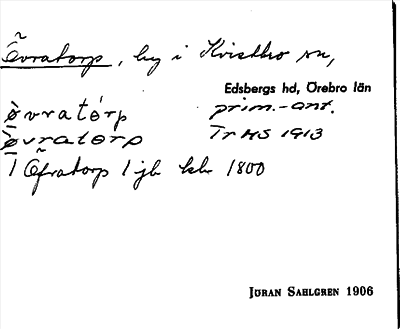 Õvratorp, by i Kvistbro sn,
Edsbergs hd, Örebro län
øvratórp prim.-ant.
øvratorp Tr HS 1913
1 Öfratorp 1 jb kbr 1800
JÖRAN SAHLGREN 1906